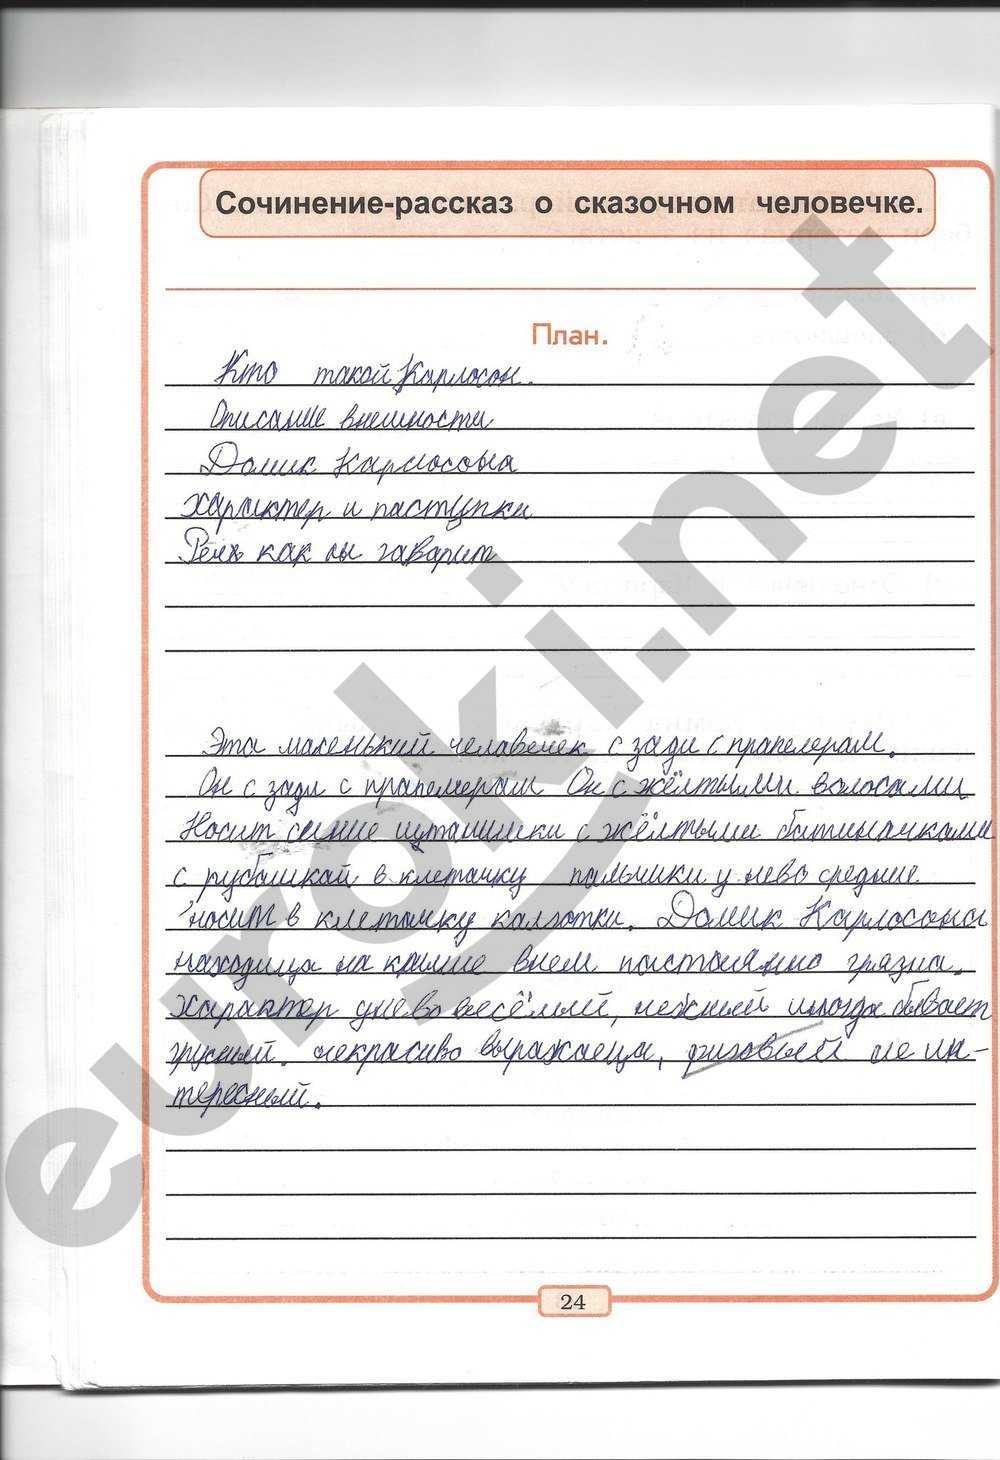 Сочинение-рассказ о сказочном человечке.
План.
Кто такой Карлосон.
Описание внешности
Домик Карлосона
характер и паступки
Речь как он гаварит
Эта маленький челавечек с зади с прапелерам.
Он с зади с прапелерам Он с жёлтыми волосами
Носит синие штанишки с жёлтыми батиначками
с рубашкай в клетачку пальчики у нево средние
носит в клетачку калготки. Домик Карлосона
находица на крыше внем пастаянно грязна.
Характер унево весёлый, нежный иногда бывает
грусный. некрасиво выражаеца, ризовый не ин-
тересный.
24
euroki.net